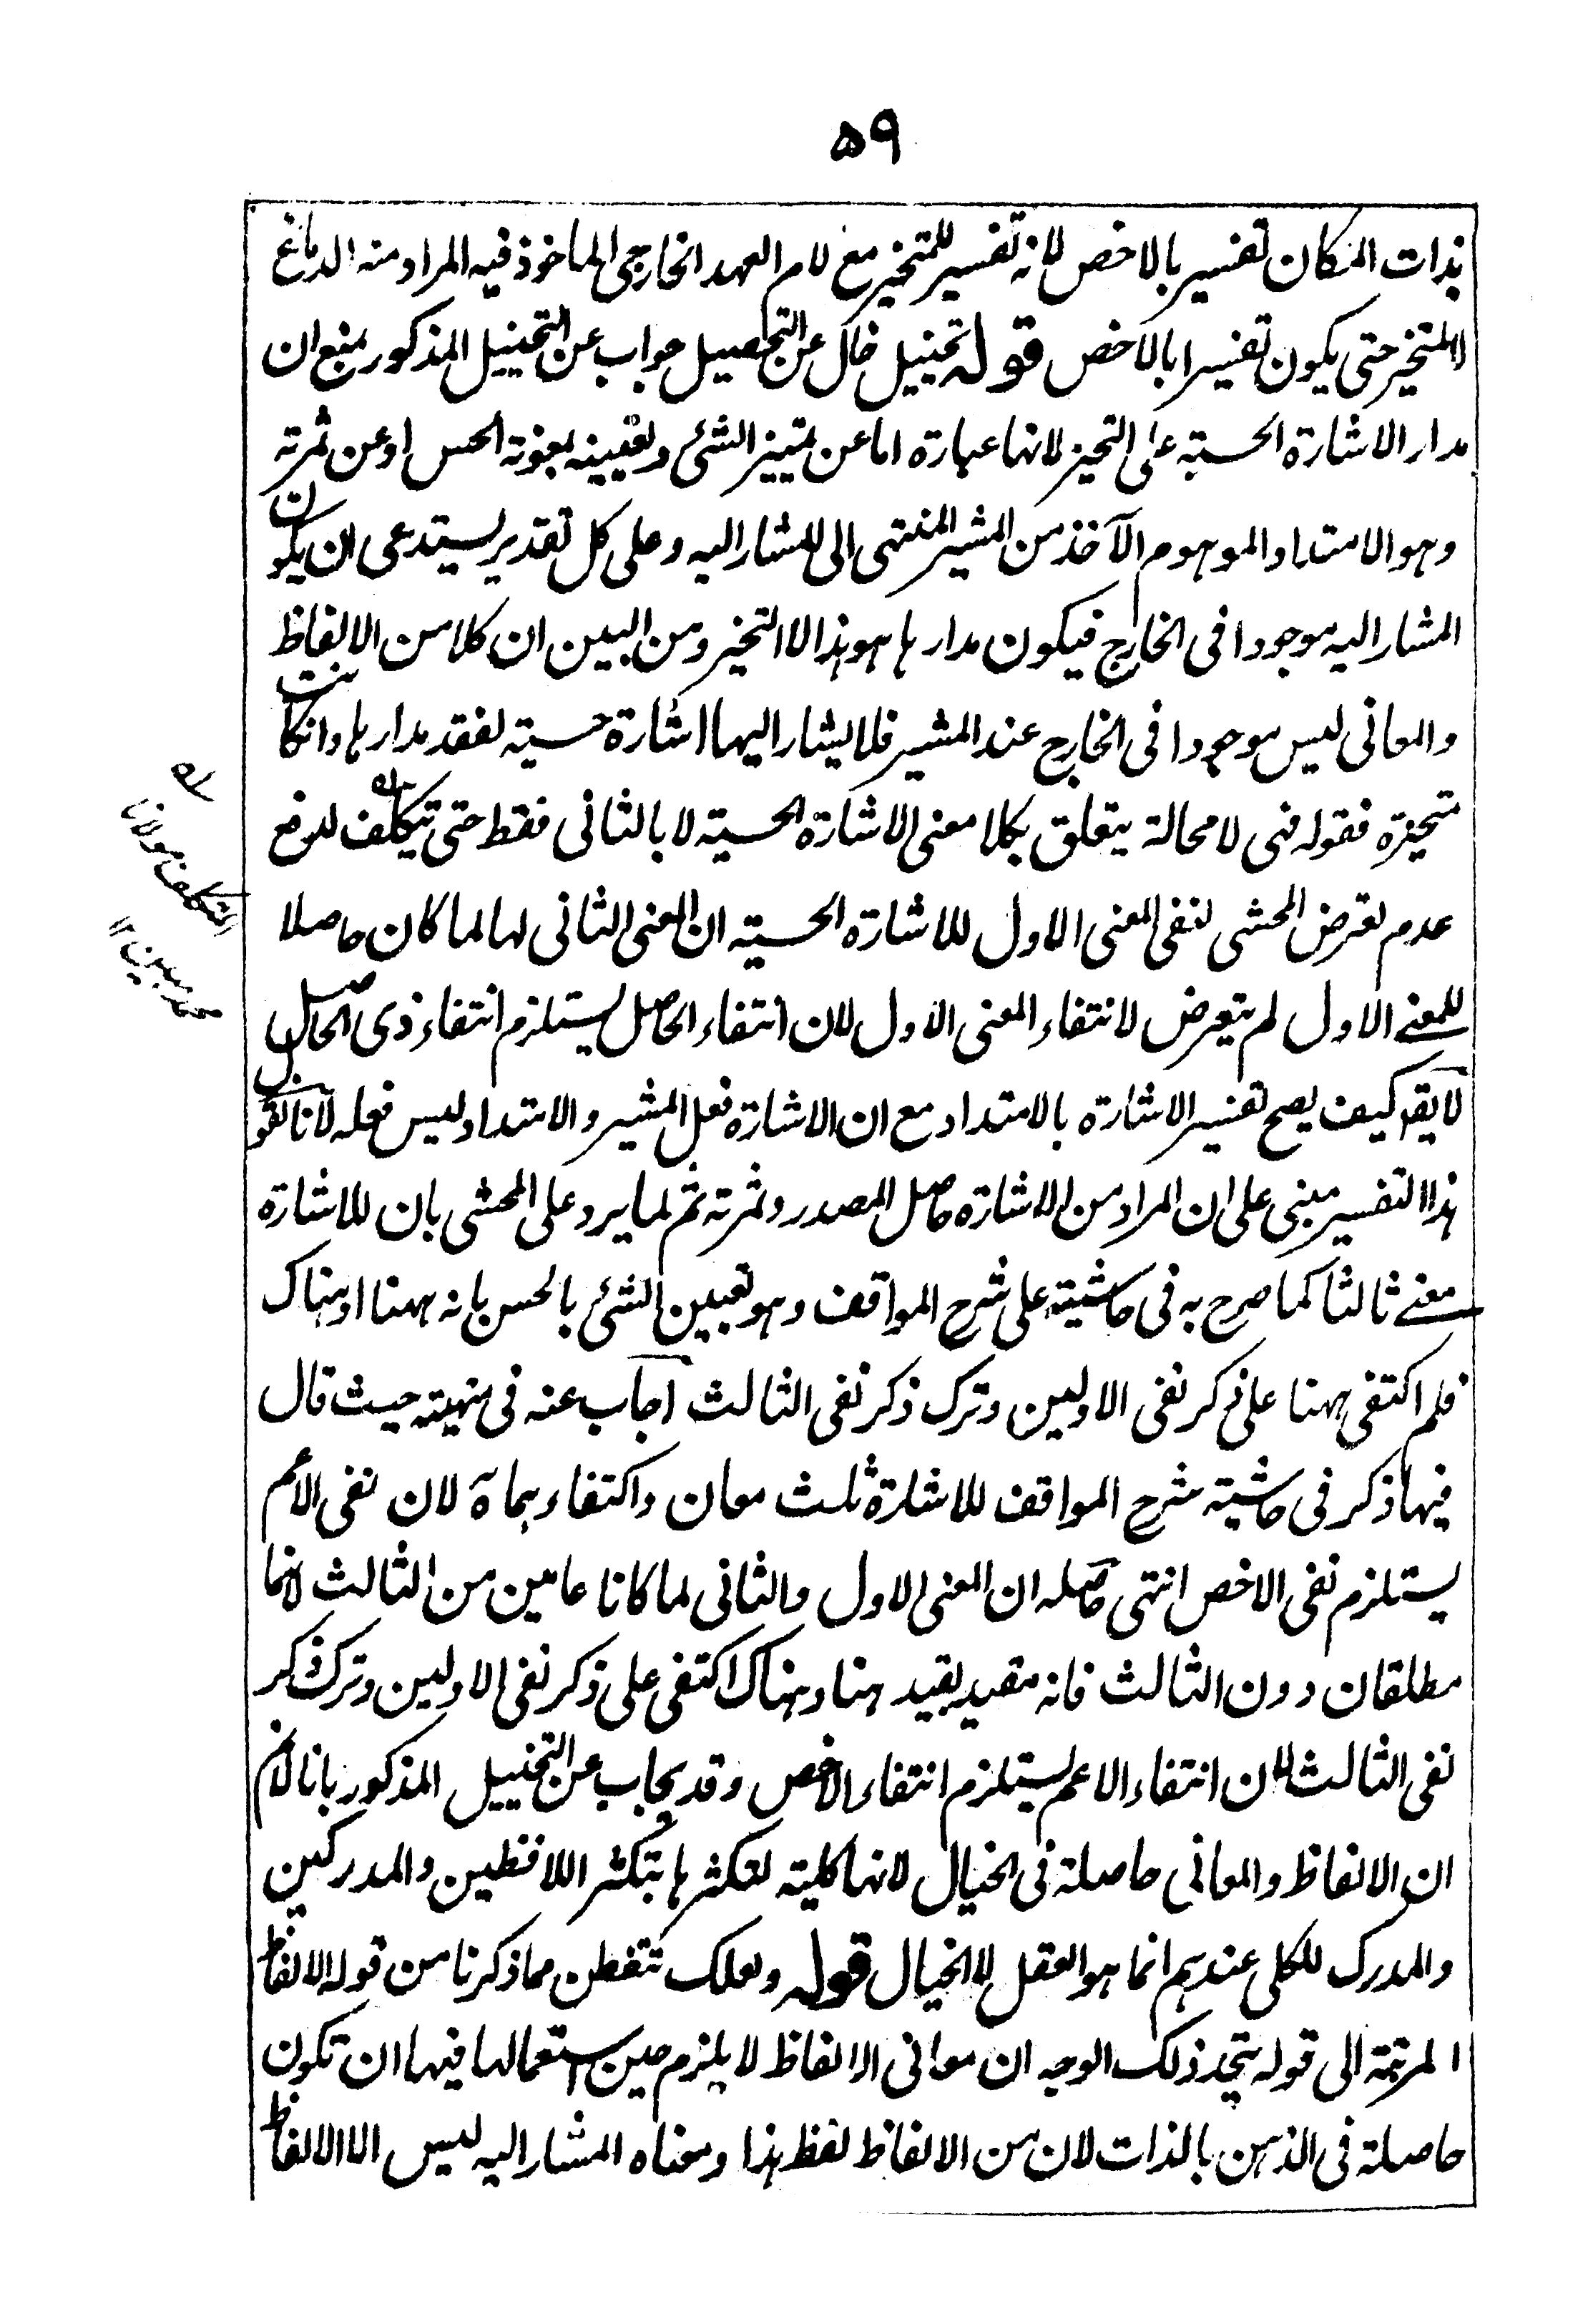 ۵۹
بذات المکان تفسیر بالاخص لانہ تفسیر للمتحیز مع لام العہد الخارجی الماخوذ فیہ المراد منہ الدماغ
لا المتحیز حتی یکون تفسیرا بالاخص قولہ تخییل خال عن التحصیل جواب عن التخییل المذکور بمنع ان
مدار الاشارۃ الحسیۃ علی التحیز لانہا عبارۃ اما عن تمییز الشئ وتعیینہ بمعونۃ الحس او عن ثمرتہ
وہو الامتداد الموہوم الآخذ من المشیر المنتہی الی المشار الیہ وعلی کل تقدیر یستدعی ان یکون
المشار الیہ موجودا فی الخارج فیکون مدارہا ہو ہذا لا التحیز ومن البین ان کلا من الالفاظ
والمعانی لیس موجودا فی الخارج عند المشیر فلا یشار الیہا اشارۃ حسیۃ لفقد مدارہا وان کانت
متحیزۃ فقولہ فہی لا محالۃ یتعلق بکلا معنی الاشارۃ الحسیۃ لا بالثانی فقط حتی یتکلف لدفع
عدم تعرض المحشی لنفی المعنی الاول للاشارۃ الحسیۃ ان المعنی الثانی لہا لما کان حاصلا
للمعنے الاول لم یتعرض لانتفاء المعنی الاول لان انتفاء الحاصل یستلزم انتفاء ذی الحاصل
لا یقہ کیف یصح تفسیر الاشارۃ بالامتداد مع ان الاشارۃ فعل المشیر والامتداد لیس فعلہ لانا نقول
ہذا التفسیر مبنی علی ان المراد من الاشارۃ حاصل المصدر وثمرتہ ثم لما یرد علی المحشی بان للاشارۃ
معنے ثالثا کما صرح بہ فی حاشیتہ علی شرح المواقف وہو تعیین الشئ بالحس بانہ ہہنا او ہناک
فلم اکتفی ہہنا علی ذکر نفی الاولین وترک ذکر نفی الثالث اجاب عنہ فی منہیتہ حیث قال
فیہا ذکر فی حاشیۃ شرح المواقف للاشارۃ ثلث معان واکتفاء بہما آہ لان نفی الاعم
یستلزم نفی الاخص انتہی حاصلہ ان المعنی الاول والثانی لما کانا عامین من الثالث لانہما
مطلقان دون الثالث فانہ مقید بقید ہنا وہناک اکتفی علی ذکر نفی الاولین وترک ذکر
نفی الثالث لان انتفاء الاعم یستلزم انتفاء الاخص وقد یجاب عن التخییل المذکور بانا لانم
ان الالفاظ والمعانی حاصلۃ فی الخیال لانہا کلیۃ لتکثرہا بتکثر اللافظین والمدرکین
والمدرک للکلی عندہم انما ہو العقل لا الخیال قولہ ولعلک تتفطن مما ذکرنا من قولہ الالفاظ
المرتبۃ الی قولہ یتحد ذلک الوجہ ان معانی الالفاظ لا یلزم حین استعمالہا فیہا ان تکون
حاصلۃ فی الذہن بالذات لان من الالفاظ لفظ ہذا ومعناہ المشار الیہ لیس الا الالفاظ
لہ
المتکلف مولانا
محمد مبین ۱۲